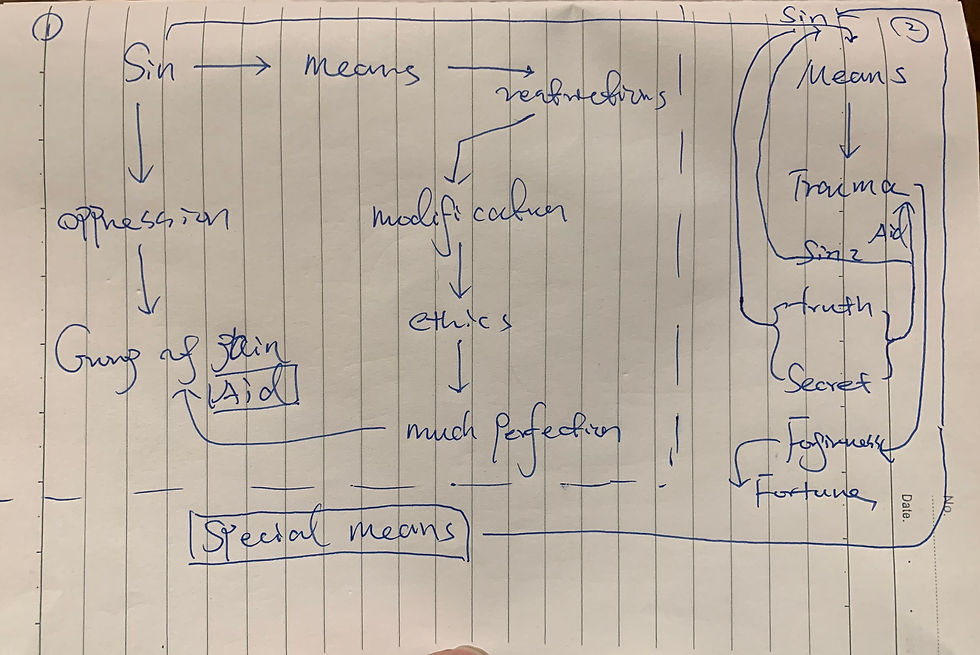 ①
Sin → means →
restrictions
oppression
modification
ethics
Gung of pain
Aid
much perfection
Special means
②
Sin
Means
Trauma
Aid
Sin 2
truth
Secret
Forgiveness
Fortune,
Date.
No.